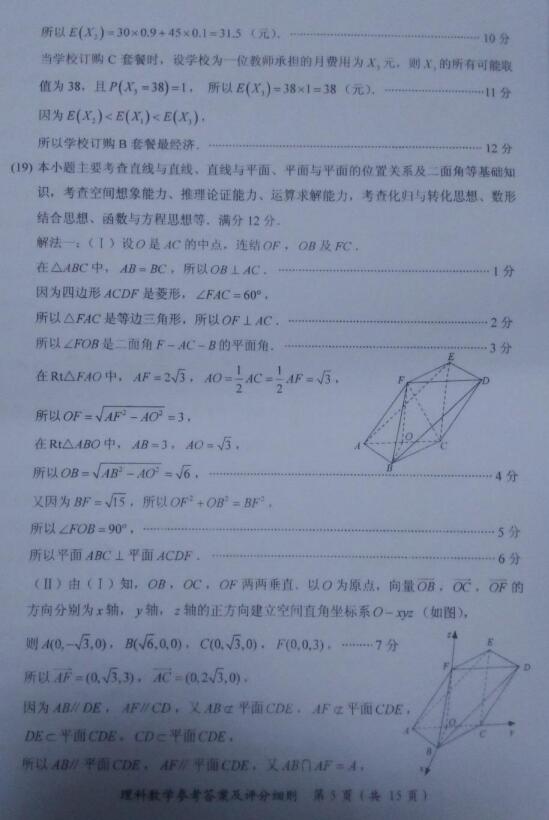 所以E(X₂)=30×0.9+45×0.1=31.5（元）. ……10分
当学校订购C套餐时，设学校为一位教师承担的月费用为X₃元，则X₃的所有可能取
值为38，且P(X₃=38)=1，所以E(X₃)=38×1=38（元）. ……11分
因为E(X₂)<E(X₁)<E(X₃)，
所以学校订购B套餐最经济. ……12分
(19) 本小题主要考查直线与直线、直线与平面、平面与平面的位置关系及二面角等基础知
识，考查空间想象能力、推理论证能力、运算求解能力，考查化归与转化思想、数形
结合思想、函数与方程思想等．满分12分．
解法一：(Ⅰ) 设O是AC的中点，连结OF，OB及FC．
在△ABC中，AB=BC，所以OB⊥AC． ……1分
因为四边形ACDF是菱形，∠FAC=60°，
所以△FAC是等边三角形，所以OF⊥AC． ……2分
所以∠FOB是二面角F-AC-B的平面角． ……3分
在Rt△FAO中，AF=2√3，AO=1/2AC=1/2AF=√3，
所以OF=√(AF²-AO²)=3，
在Rt△ABO中，AB=3，AO=√3，
所以OB=√(AB²-AO²)=√6， ……4分
又因为BF=√15，所以OF²+OB²=BF²，
所以∠FOB=90°， ……5分
所以平面ABC⊥平面ACDF． ……6分
E
F
D
A
O
C
B
(Ⅱ) 由(Ⅰ)知，OB，OC，OF两两垂直．以O为原点，向量OB，OC，OF的
方向分别为x轴，y轴，z轴的正方向建立空间直角坐标系O-xyz（如图），
则A(0,-√3,0)，B(√6,0,0)，C(0,√3,0)，F(0,0,3)， ……7分
所以AF=(0,√3,3)，AC=(0,2√3,0)，
因为AB//DE，AF//CD，又AB⊄平面CDE，AF⊄平面CDE，
DE⊂平面CDE，CD⊂平面CDE，
所以AB//平面CDE，AF//平面CDE，又AB∩AF=A，
z
E
F
D
A
O
C
y
B
x
理科数学参考答案及评分细则 第5页（共 15页）